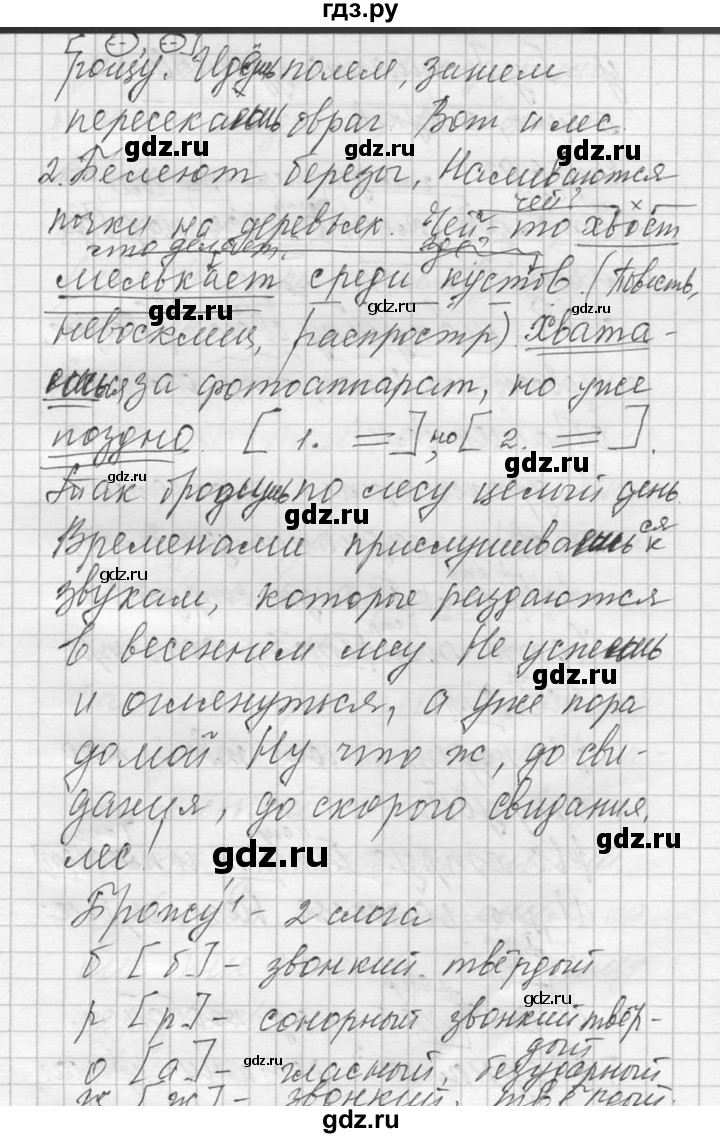 гдз.ру
рощу. Идёшь полем, затем
пересекаешь овраг. Вот и лес.
gdz.ru gdz.ru
2. Белеют березы, Наливаются
чей? х
почки на деревьях. Чей-то хвост
что делает? где?
мелькает среди кустов. (Повеств,
gdz.ru gdz.ru
невосклиц, распростр) Хвата-
ешься за фотоаппарат, но уже
поздно. [ 1. == ], но [ 2. == ].
gdz.ru gdz.ru
Так бродишь по лесу целый день.
gdz.ru
Временами прислушиваешься к
gdz.ru
звукам, которые раздаются
в весеннем лесу. Не успеешь
gdz.ru
и оглянуться, а уже пора
домой. Ну что ж, до сви-
дания, до скорого свидания,
gdz.ru gdz.ru
лес!
Брожу - 2 слога
б [б] - звонкий твёрдый
gdz.ru
р [р] - сонорный звонкий твёр-
дый
о [а] - гласный, безударный
gdz.ru
ж [ж] - звонкий, твёрдый.
gdz.ru gdz.ru
gdz.ru